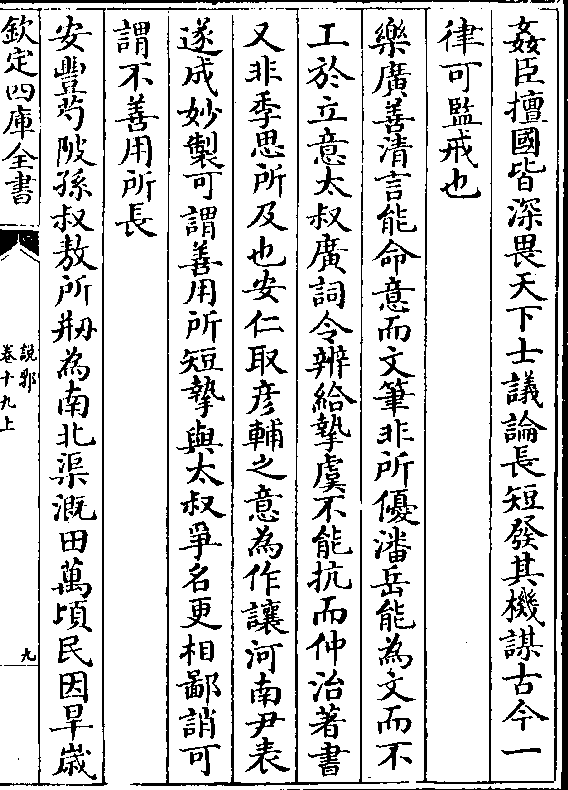 姦臣擅國皆深畏天下士議論長短發其機謀古今一
律可監戒也
樂廣善清言能命意而文筆非所優潘岳能為文而不
工於立意太叔廣詞令辨給摯虞不能抗而仲治著書
又非季思所及也安仁取彦輔之意為作讓河南尹表
遂成妙製可謂善用所短摯與太叔爭名更相鄙誚可
謂不善用所長
安豐芍陂孫叔敖所刱為南北渠溉田萬頃民因旱歲
欽定四庫全書
說郛
卷十九上
九